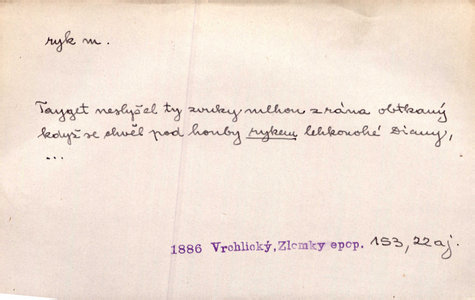 ryk m.
Tayget neslyšel ty zvuky mlhou z rána obtkaný
když se chvěl pod honby rykem lehkonohé Diany,
...
1886 Vrchlický, Zlomky epop. 153, 22 aj.